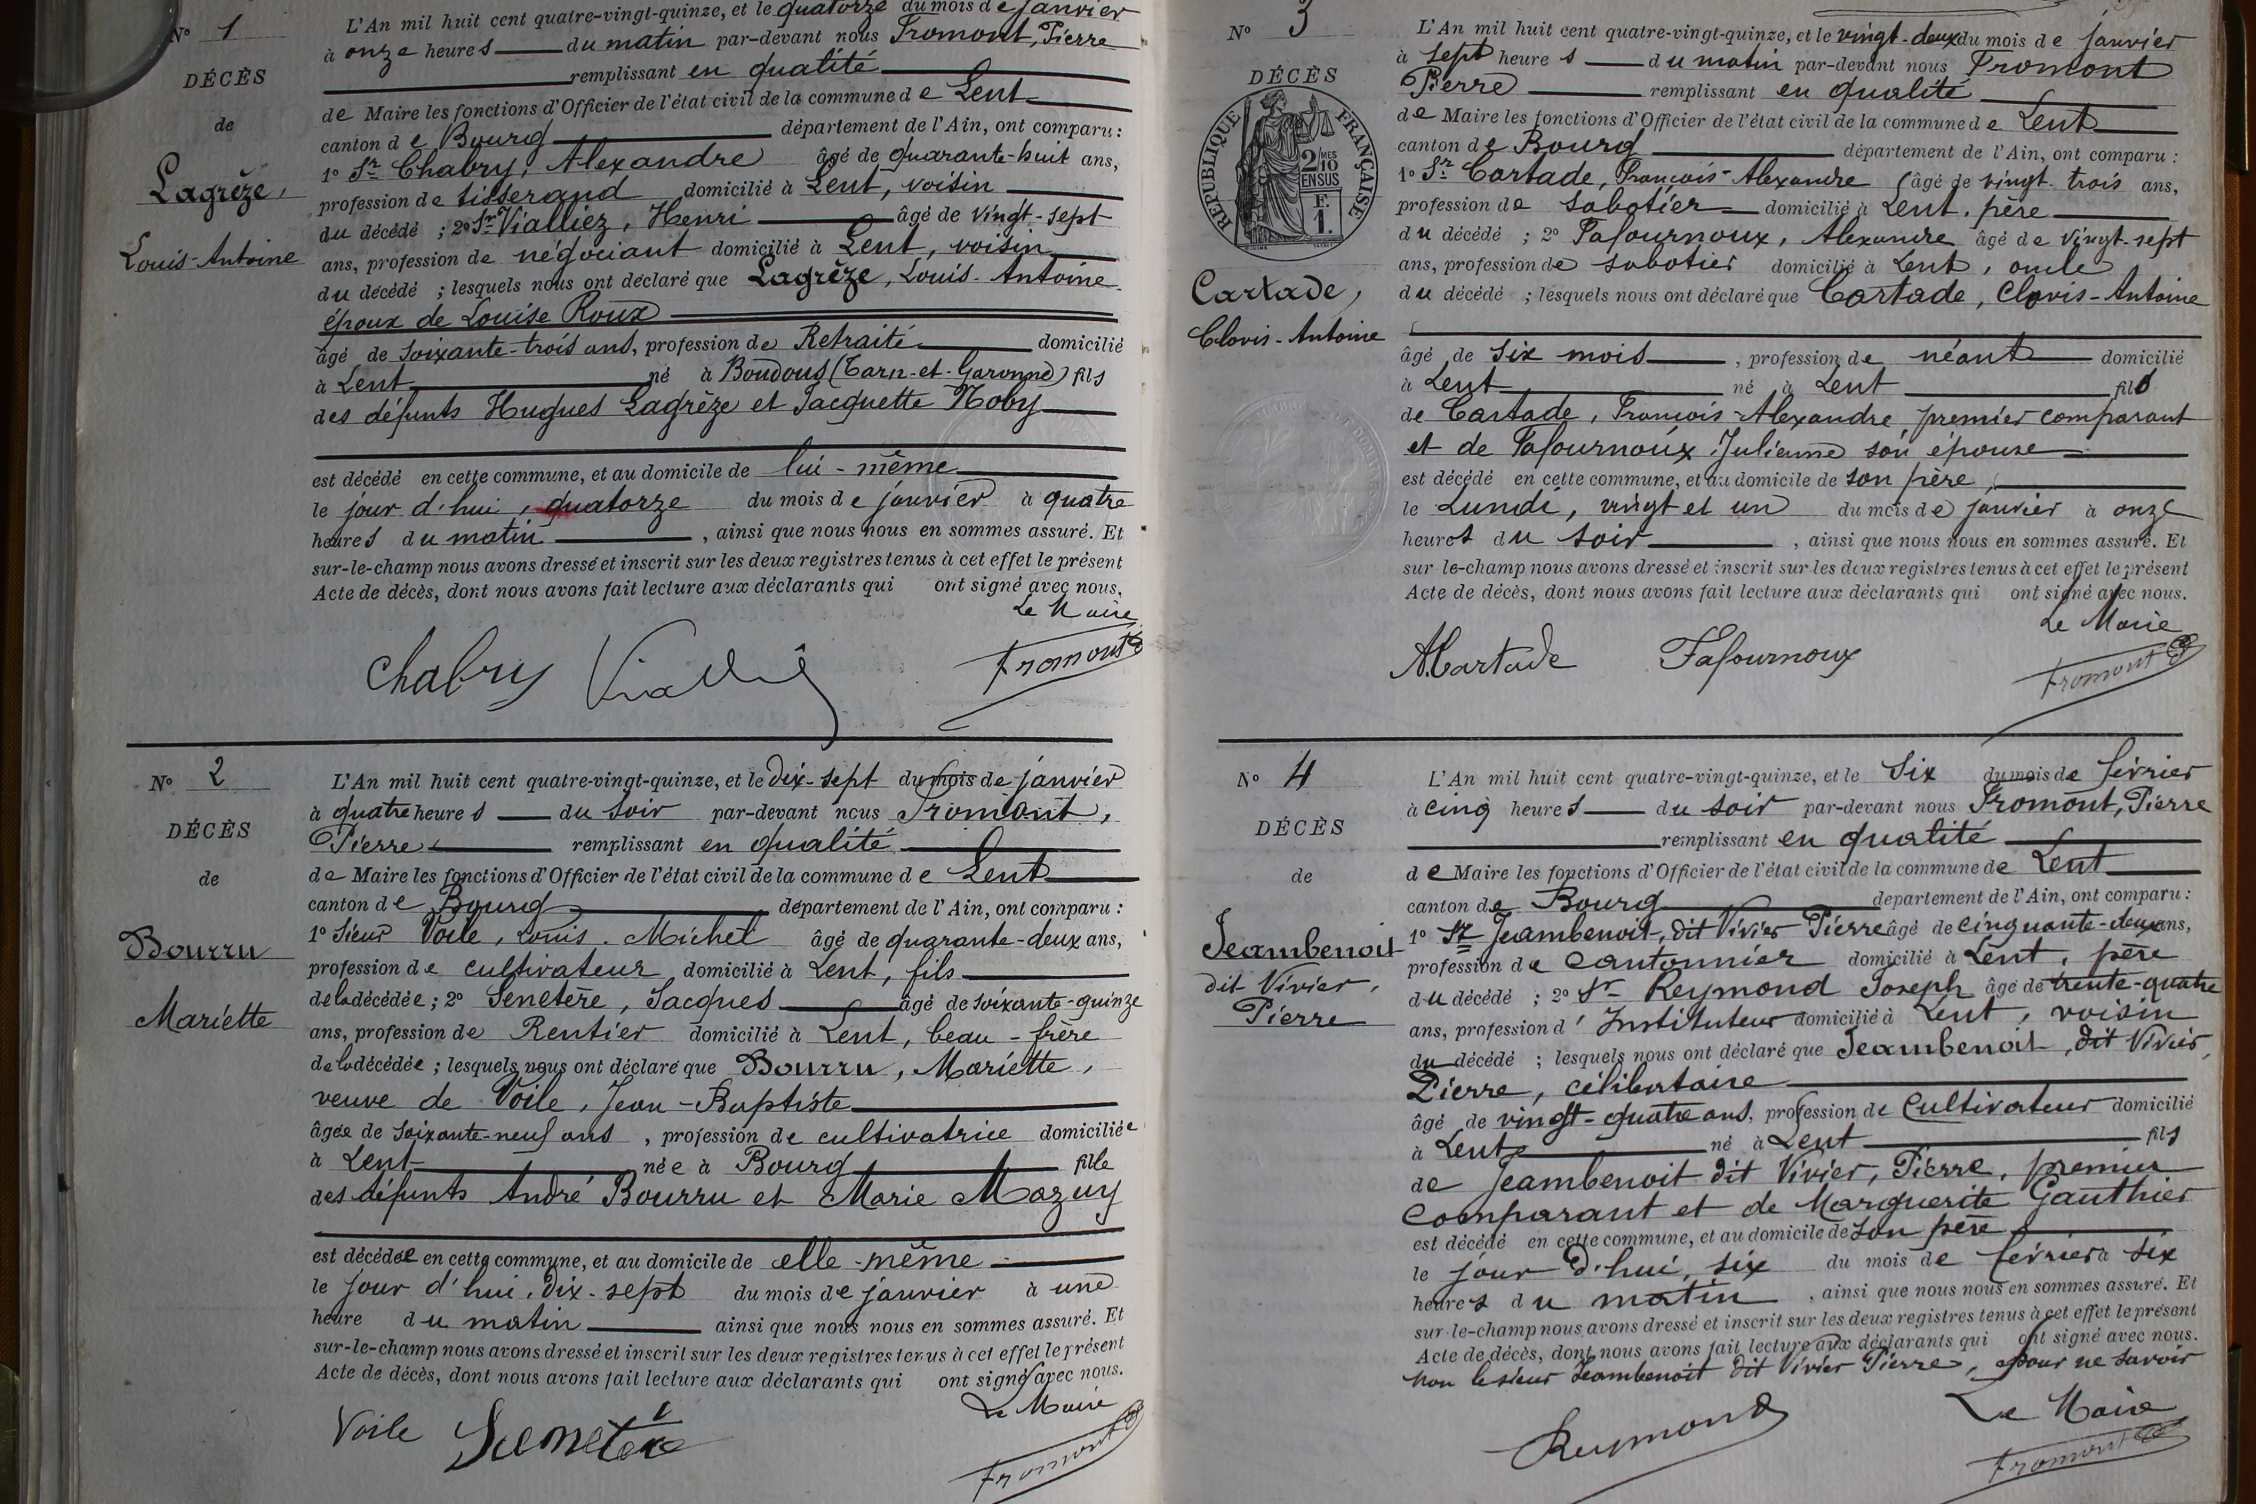 N° 1
DÉCÈS
de
Lagrèze,
Louis-Antoine
L'An mil huit cent quatre-vingt-quinze, et le quatorze du mois de janvier
à onze heures du matin par-devant nous Fromont, Pierre
remplissant en qualité
de Maire les fonctions d'Officier de l'état civil de la commune de Lent
canton de Bourg département de l'Ain, ont comparu :
1° Sr Chabry, Alexandre âgé de quarante-huit ans,
profession de tisserand domicilié à Lent, voisin
du décédé ; 2° Sr Vialliez, Henri âgé de vingt-sept
ans, profession de négociant domicilié à Lent, voisin
du décédé ; lesquels nous ont déclaré que Lagrèze, Louis-Antoine
époux de Louise Roux
âgé de soixante-trois ans, profession de Retraité domicilié
à Lent né à Boudous (Tarn-et-Garonne) fils
des défunts Hugues Lagrèze et Jacquette Noby
est décédé en cette commune, et au domicile de lui-même
le jour d'hui, quatorze du mois de janvier à quatre
heures du matin, ainsi que nous nous en sommes assuré. Et
sur-le-champ nous avons dressé et inscrit sur les deux registres tenus à cet effet le présent
Acte de décès, dont nous avons fait lecture aux déclarants qui ont signé avec nous.
Le Maire
Chabry
Fromont
N° 2
DÉCÈS
de
Bourru
Mariette
L'An mil huit cent quatre-vingt-quinze, et le dix-sept du mois de janvier
à quatre heures du soir par-devant nous Fromont,
Pierre remplissant en qualité
de Maire les fonctions d'Officier de l'état civil de la commune de Lent
canton de Bourg département de l'Ain, ont comparu :
1° Sieur Voile, Louis. Michel âgé de quarante-deux ans,
profession de cultivateur domicilié à Lent, fils
de la décédée ; 2° Senetère, Jacques âgé de soixante-quinze
ans, profession de Rentier domicilié à Lent, beau-frère
de la décédée ; lesquels nous ont déclaré que Bourru, Mariette,
veuve de Voile, Jean-Baptiste
âgée de soixante-neuf ans, profession de cultivatrice domiciliée
à Lent née à Bourg fille
des défunts André Bourru et Marie Mazuy
est décédée en cette commune, et au domicile de elle-même
le jour d'hui, dix-sept du mois de janvier à une
heure du matin ainsi que nous nous en sommes assuré. Et
sur-le-champ nous avons dressé et inscrit sur les deux registres tenus à cet effet le présent
Acte de décès, dont nous avons fait lecture aux déclarants qui ont signé avec nous.
Le Maire
Voile Senetère
Fromont
N° 3
DÉCÈS
RÉPUBLIQUE FRANÇAISE
2/10MES
EN SUS
F.
1.
Cartade,
Clovis-Antoine
L'An mil huit cent quatre-vingt-quinze, et le vingt-deux du mois de janvier
à sept heures du matin par-devant nous Fromont
Pierre remplissant en qualité
de Maire les fonctions d'Officier de l'état civil de la commune de Lent
canton de Bourg département de l'Ain, ont comparu :
1° Sr Cartade, François-Alexandre âgé de vingt-trois ans,
profession de sabotier domicilié à Lent, père
du décédé ; 2° Fafournoux, Alexandre âgé de vingt-sept
ans, profession de sabotier domicilié à Lent, oncle
du décédé ; lesquels nous ont déclaré que Cartade, Clovis-Antoine
âgé de six mois, profession de néant domicilié
à Lent né à Lent fils
de Cartade, François-Alexandre, premier comparant
et de Fafournoux Julienne son épouse
est décédé en cette commune, et au domicile de son père,
le Lundi, vingt et un du mois de janvier à onze
heures du soir, ainsi que nous nous en sommes assuré. Et
sur-le-champ nous avons dressé et inscrit sur les deux registres tenus à cet effet le présent
Acte de décès, dont nous avons fait lecture aux déclarants qui ont signé avec nous.
Le Maire
A. Cartade Fafournoux
Fromont
N° 4
DÉCÈS
de
Jeambenoit
dit Vivier,
Pierre
L'An mil huit cent quatre-vingt-quinze, et le six du mois de février
à cinq heures du soir par-devant nous Fromont, Pierre
remplissant en qualité
de Maire les fonctions d'Officier de l'état civil de la commune de Lent
canton de Bourg département de l'Ain, ont comparu :
1° Sr Jeambenoit, dit Vivier Pierre âgé de cinquante-deux ans,
profession de cantonnier domicilié à Lent, père
du décédé ; 2° Sr Reymond Joseph âgé de trente-quatre
ans, profession d'Instituteur domicilié à Lent, voisin
du décédé ; lesquels nous ont déclaré que Jeambenoit, dit Vivier,
Pierre, célibataire
âgé de vingt-quatre ans, profession de Cultivateur domicilié
à Lent né à Lent fils
de Jeambenoit dit Vivier, Pierre, premier
comparant et de Marguerite Gauthier
est décédé en cette commune, et au domicile de son père
le jour d'hui, six du mois de février à six
heures du matin, ainsi que nous nous en sommes assuré. Et
sur-le-champ nous avons dressé et inscrit sur les deux registres tenus à cet effet le présent
Acte de décès, dont nous avons fait lecture aux déclarants qui ont signé avec nous.
non le sieur Jeambenoit dit Vivier Pierre, pour ne savoir
Le Maire
Reymond
Fromont